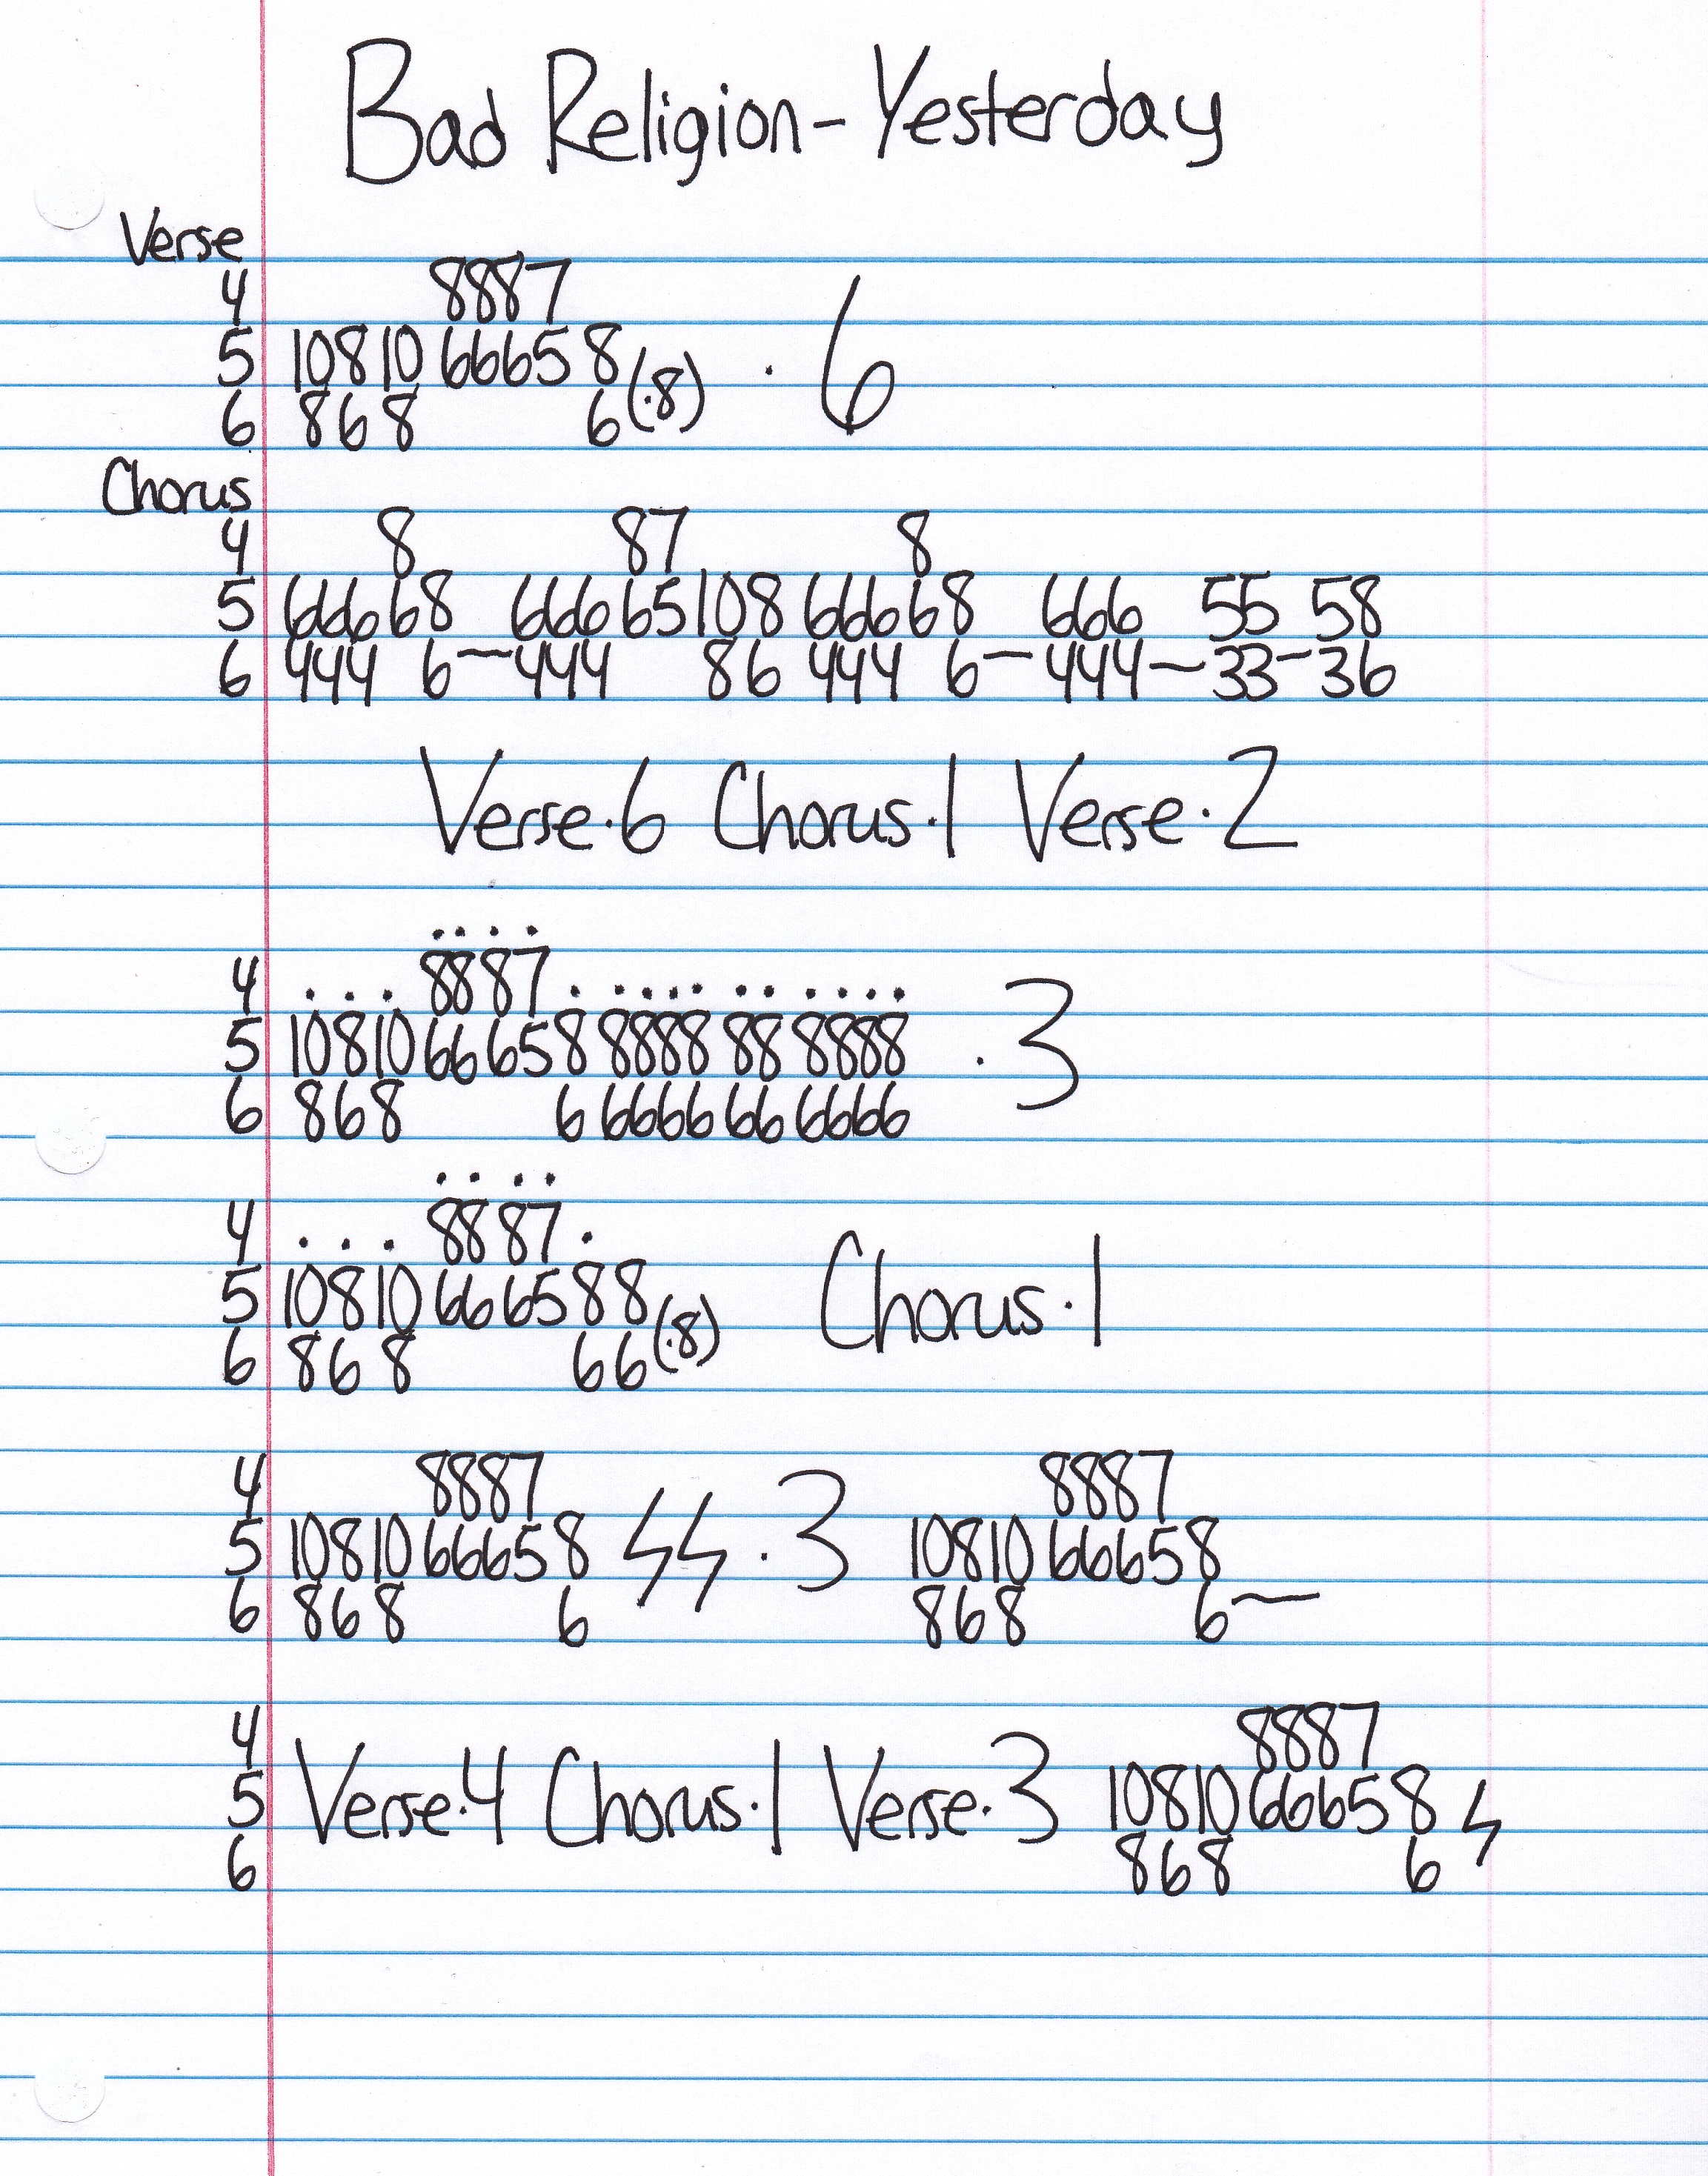 Bad Religion - Yesterday
Verse
4 8887
5 10810 66658
6 868 6 (·8) · 6
Chorus
4 8 87 8
5 66668 66665108 66668 666 55 58
6 444 6— 444 86 444 6— 444—33—36
Verse·6 Chorus·1 Verse·2
4 8887
5 10810 66658 8888 88 8888 · 3
6 868 6 6666 66 6666
4 8887
5 10810 666588 Chorus·1
6 868 66 (·8)
4 8887 8887
5 10810 66658 ϟϟ · 3 10810 66658
6 868 6 868 6—
4 8887
5 Verse·4 Chorus·1 Verse·3 10810 66658 ϟ
6 868 6